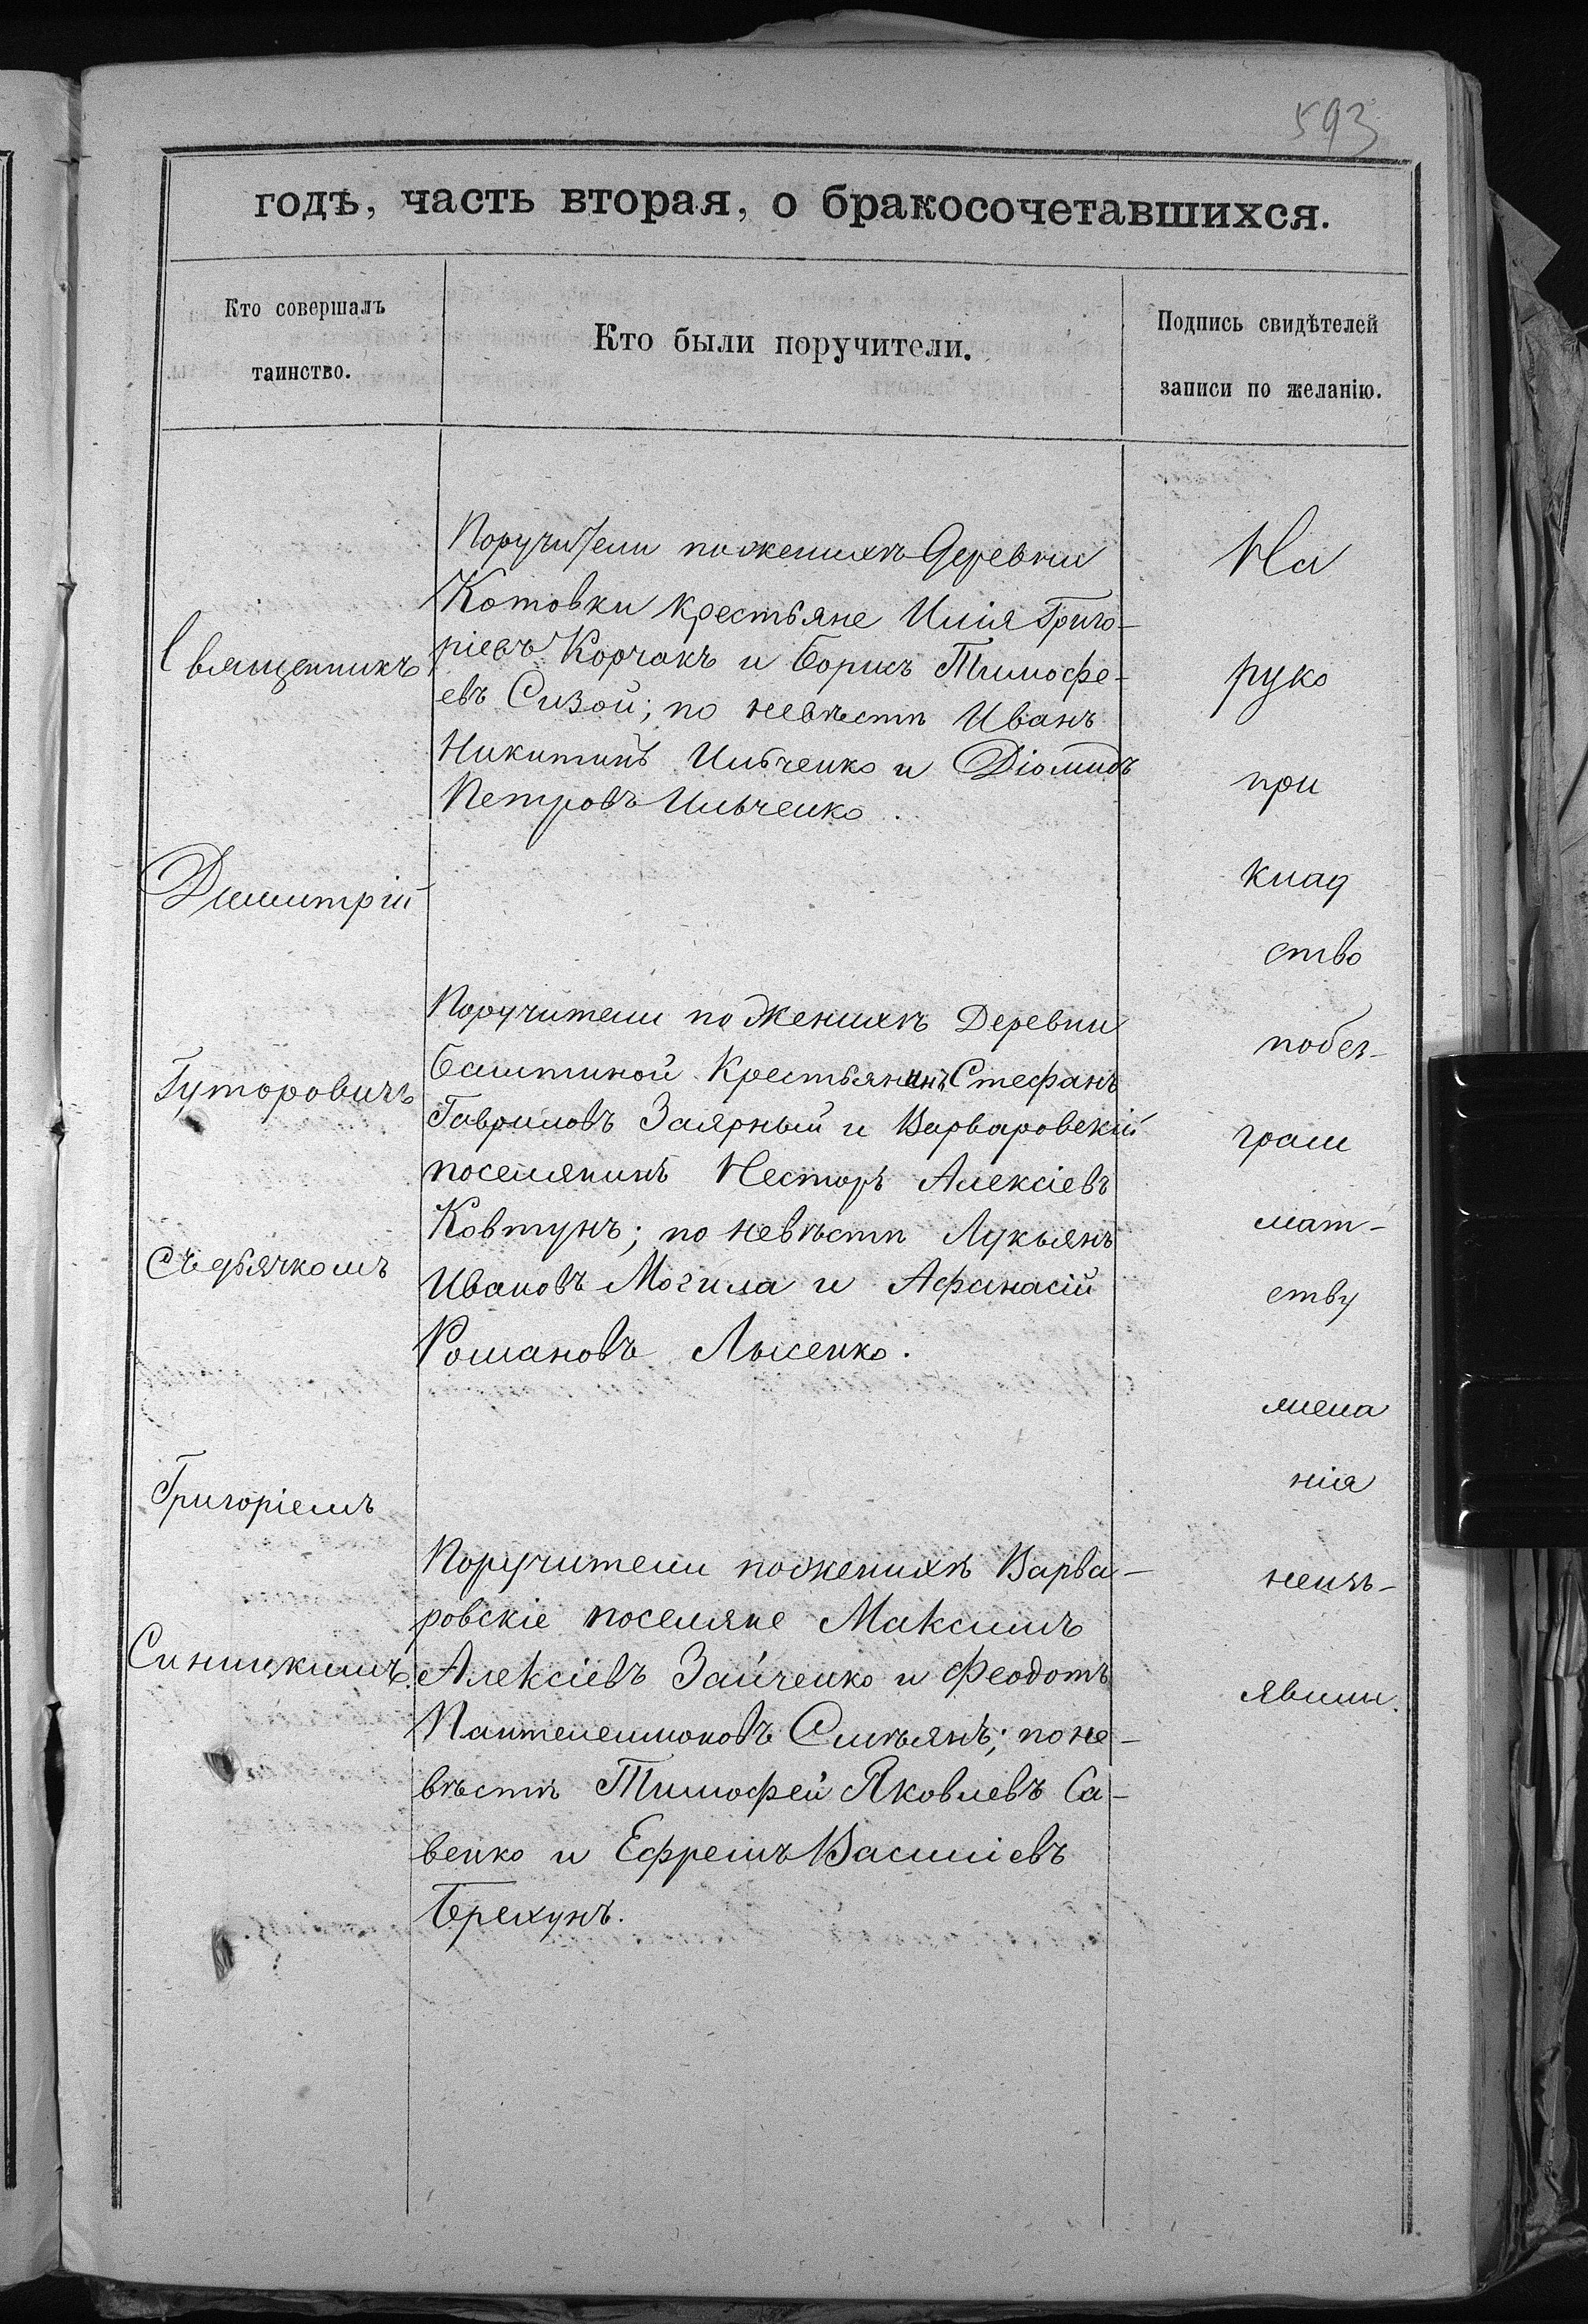 593
годѣ, часть вторая, о бракосочетавшихся.
Кто совершалъ
таинство.
Кто были поручители.
Подпись свидѣтелей
записи по желанію.
Священникъ
Димитрій
Гуторовичъ
съ дьячкомъ
Григоріемъ
Синицкимъ.
Поручители по женихѣ деревни
Котовки крестьяне Илія Григо-
ріевъ Корчакъ и Борисъ Тимофе-
евъ Сизой; по невѣстѣ Иванъ
Никитинъ Ильченко и Діомидъ
Петровъ Ильченко.
Поручители по женихѣ деревни
Баштиной крестьянинъ Стефанъ
Гавриловъ Заярный и Варваровскій
поселянинъ Несторъ Алексіевъ
Ковтунъ; по невѣстѣ Лукьянъ
Ивановъ Могила и Афанасій
Романовъ Лысенко.
Поручители по женихѣ Варва-
ровскіе поселяне Максимъ
Алексіевъ Зайченко и Феодотъ
Пантелеимоновъ Смѣьянъ; по не-
вѣстѣ Тимофей Яковлевъ Са-
венко и Ефремъ Василіевъ
Брехунъ.
На
руко
при
клад
ство
побез-
грам
мат-
ству
жела
нія
неизъ-
явили.